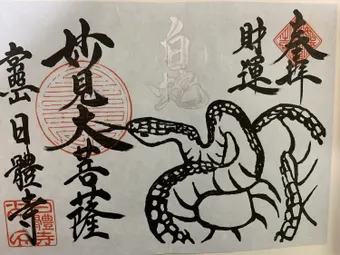 奉拝
財運
白蛇
妙見大菩薩
高靈山日體寺
日體寺